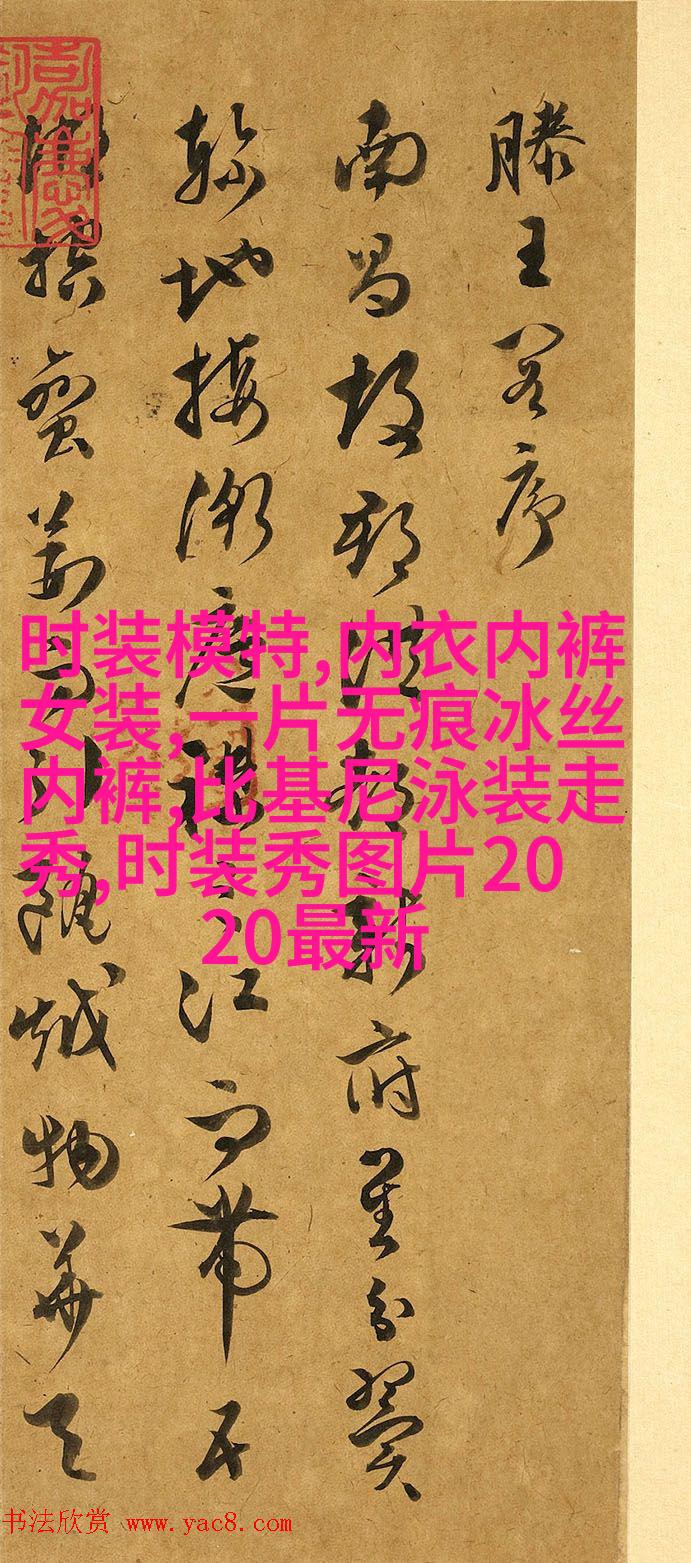 滕王閣序
南昌故郡洪都新府星分翼
軫地接衡廬襟三江而帶五
湖控蠻荊而引甌越物華天
时装模特,内衣内裤
女装,一片无痕冰丝
内裤,比基尼泳装走
秀,时装秀图片20
20最新
书法欣赏 www.yac8.com